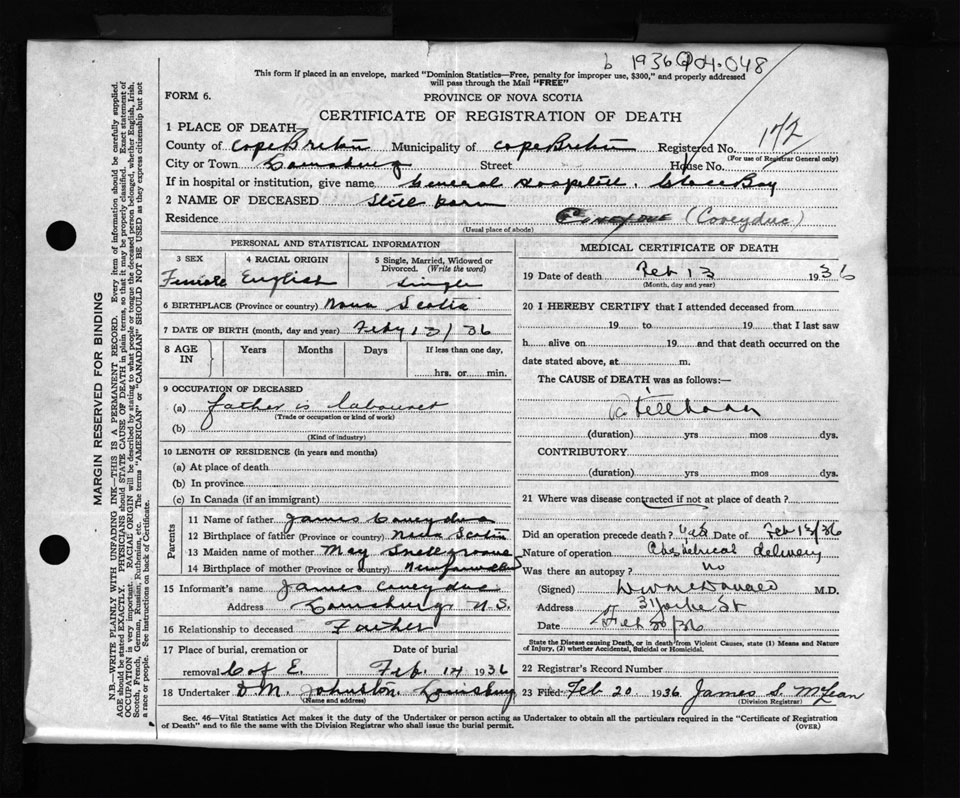 b 1936 04.048
This form if placed in an envelope, marked "Dominion Statistics—Free, penalty for improper use, $300," and properly addressed
will pass through the Mail "FREE"
FORM 6.
PROVINCE OF NOVA SCOTIA
CERTIFICATE OF REGISTRATION OF DEATH
172
1 PLACE OF DEATH
County of Cape Breton Municipality of Cape Breton Registered No.
(For use of Registrar General only)
City or Town Louisburg Street House No.
If in hospital or institution, give name General Hospital, Glace Bay
2 NAME OF DECEASED Still born
Residence (Coveyduc)
(Usual place of abode)
PERSONAL AND STATISTICAL INFORMATION
3 SEX 4 RACIAL ORIGIN 5 Single, Married, Widowed or
Divorced. (Write the word)
Female English Single
6 BIRTHPLACE (Province or country) Nova Scotia
7 DATE OF BIRTH (month, day and year) Feby 13/36
8 AGE IN Years Months Days If less than one day,
hrs. or min.
9 OCCUPATION OF DECEASED
(a) father is labourer
(Trade or occupation or kind of work)
(b)
(Kind of industry)
10 LENGTH OF RESIDENCE (in years and months)
(a) At place of death
(b) In province
(c) In Canada (if an immigrant)
Parents
11 Name of father James
12 Birthplace of father (Province or country) Nova Scotia
13 Maiden name of mother May Snelgroove
14 Birthplace of mother (Province or country) Newfoundland
15 Informant's name James Coveyduc
Address Louisburg N.S.
16 Relationship to deceased Father
17 Place of burial, cremation or Date of burial
removal C of E. Feb. 14 1936
18 Undertaker D.M. Johnston. Louisburg
(Name and address)
MEDICAL CERTIFICATE OF DEATH
19 Date of death Feb 13 1936
(Month, day and year)
20 I HEREBY CERTIFY that I attended deceased from
19 to 19 that I last saw
h alive on 19 and that death occurred on the
date stated above, at m.
The CAUSE of DEATH was as follows:—
Stillborn
(duration) yrs mos dys.
CONTRIBUTORY
(duration) yrs mos dys.
21 Where was disease contracted if not at place of death?
Did an operation precede death? yes Date of Feb 13/36
Nature of operation Obstetrical delivery
Was there an autopsy? no
(Signed) M.D.
Address St
Date Feb 20/36
State the Disease causing Death, or in death from Violent Causes, state (1) Means and Nature
of Injury, (2) whether Accidental, Suicidal or Homicidal.
22 Registrar's Record Number
23 Filed Feb 20 1936 James S. McLean
(Division Registrar)
Sec. 46—Vital Statistics Act makes it the duty of the Undertaker or person acting as Undertaker to obtain all the particulars required in the "Certificate of Registration
of Death" and to file the same with the Division Registrar who shall issue the burial permit.
(OVER)
MARGIN RESERVED FOR BINDING
N.B.—WRITE PLAINLY WITH UNFADING INK—THIS IS A PERMANENT RECORD. Every item of information should be carefully supplied.
AGE should be stated EXACTLY. PHYSICIANS should STATE CAUSE OF DEATH in plain terms, so that it may be properly classified. Exact statement of
OCCUPATION is very important. RACIAL ORIGIN will be described by stating to what people or tongue the deceased person belonged, whether English, Irish,
Scotch, French, German, Russian, Ruthenian, etc. The terms "AMERICAN" or "CANADIAN" SHOULD NOT BE USED as they express citizenship but not
a race or people. See instructions on back of Certificate.